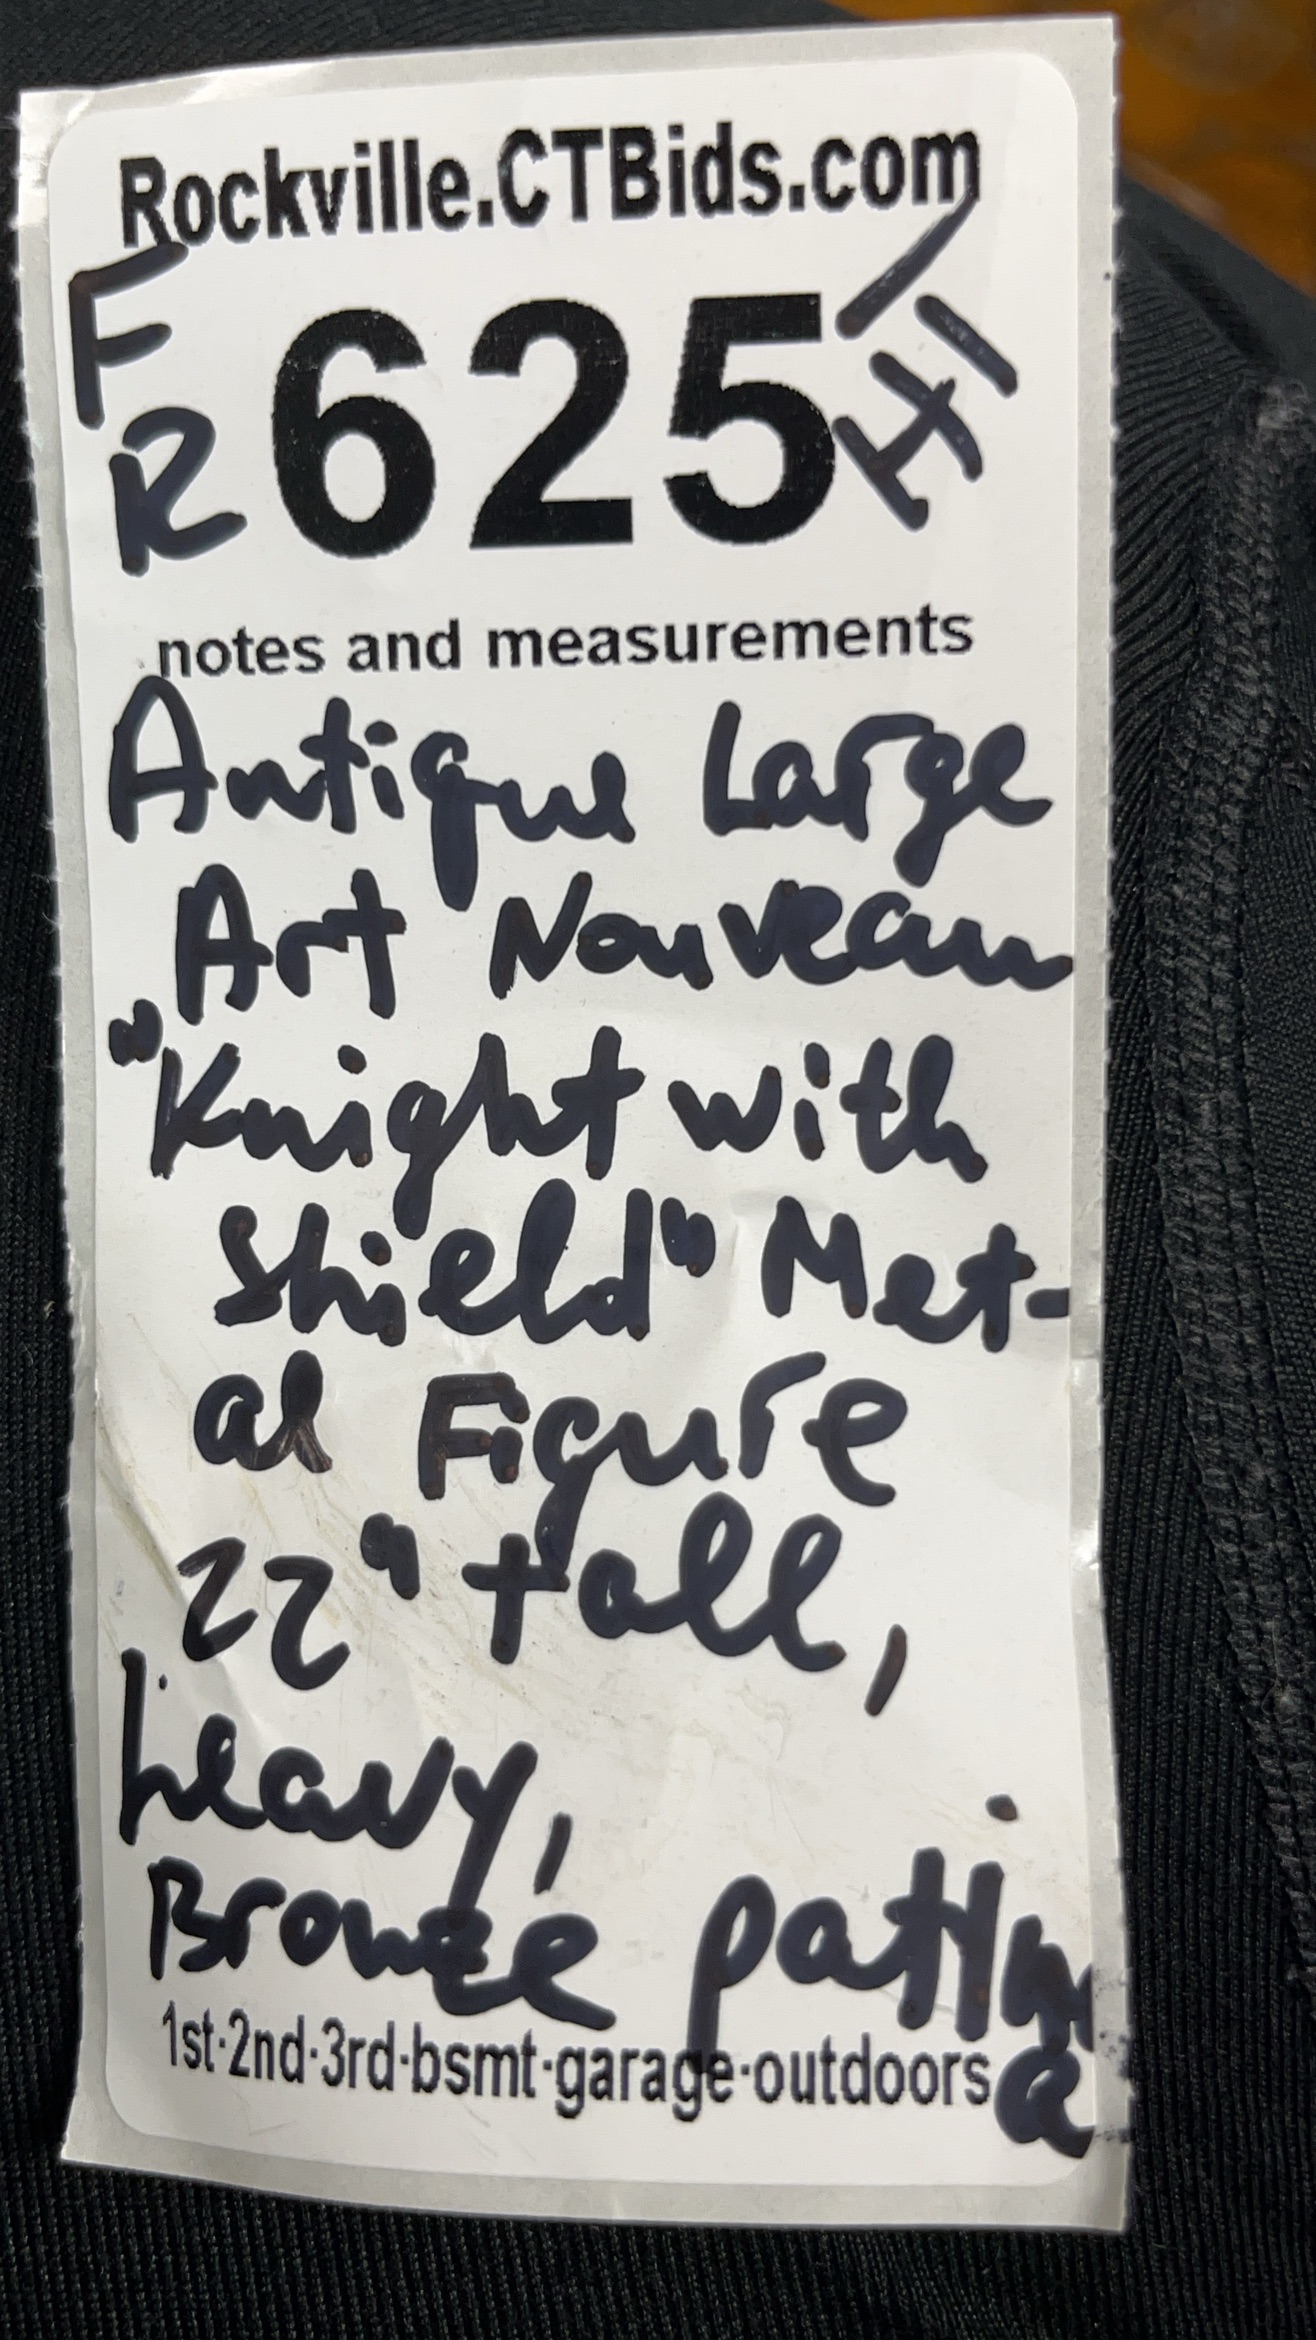 Rockville.CTBids.com
F
R
625
notes and measurements
Antique Large
Art Nouveau
"Knight with
Shield" Met-
al Figure
22" tall,
heavy,
Bronze patina
1st·2nd·3rd·bsmt·garage·outdoors